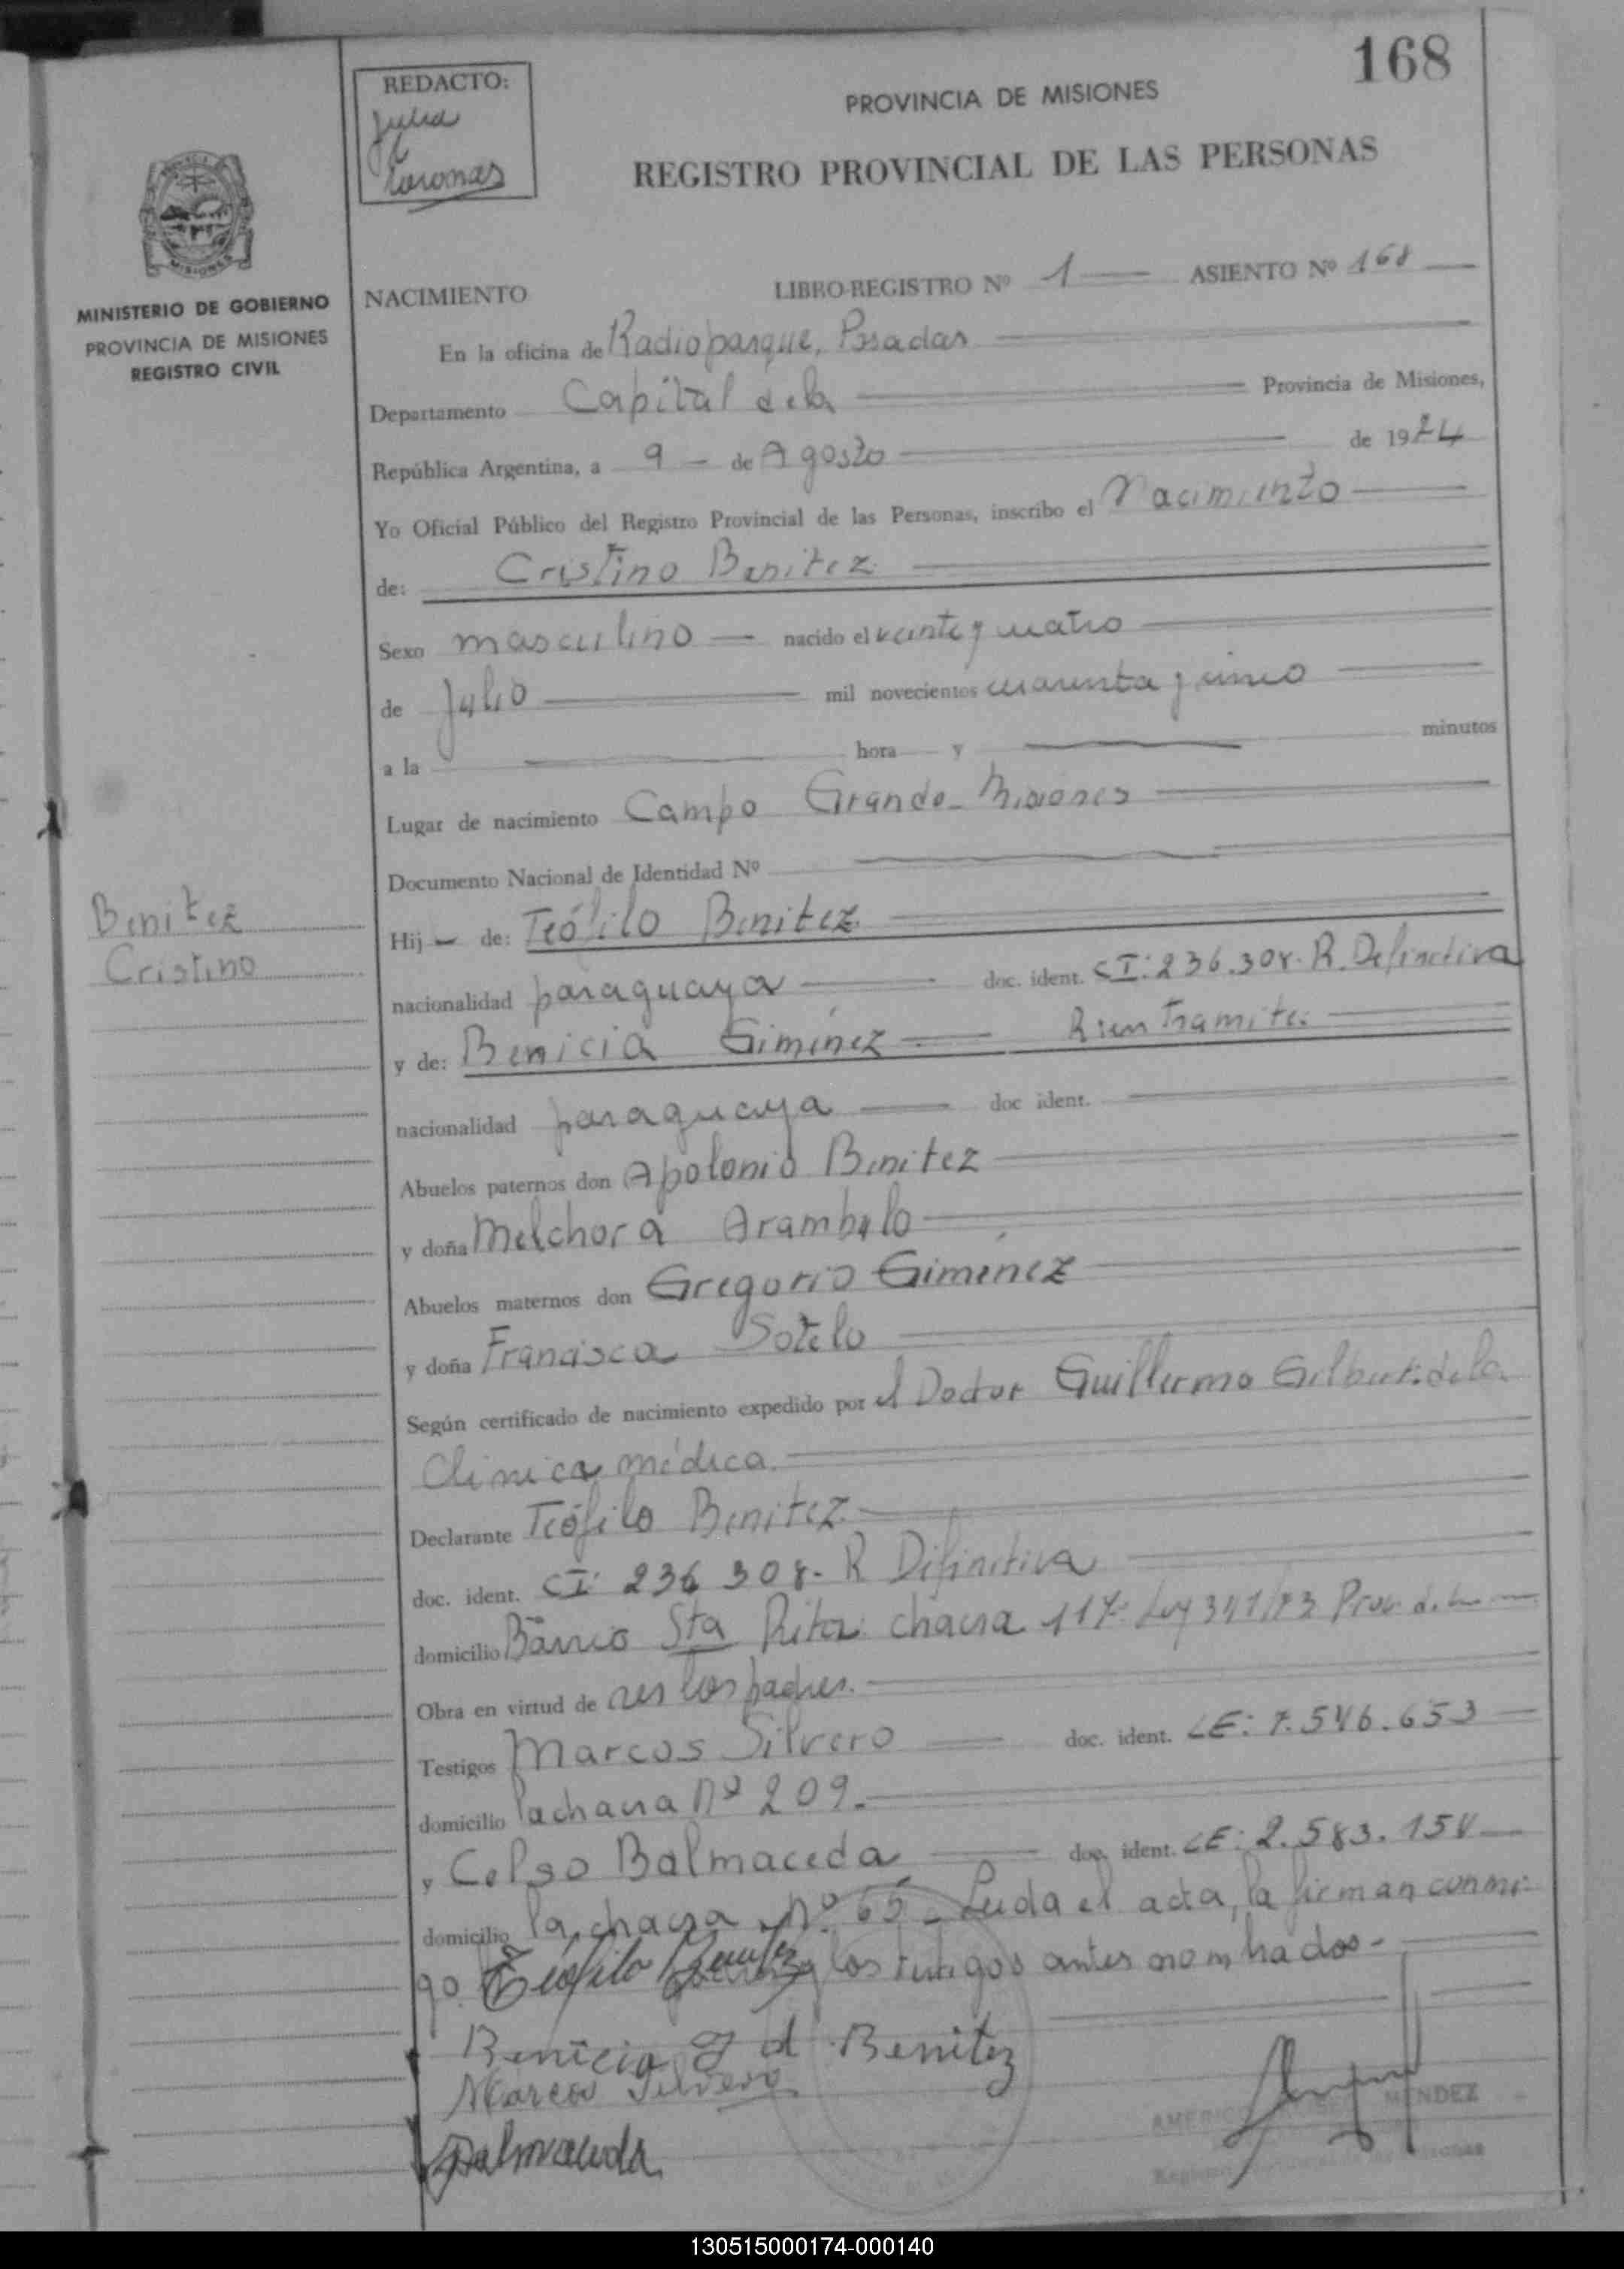 168
REDACTO:
Julia
PROVINCIA DE MISIONES
REGISTRO PROVINCIAL DE LAS PERSONAS
MISIONES
MINISTERIO DE GOBIERNO
PROVINCIA DE MISIONES
REGISTRO CIVIL
NACIMIENTO LIBRO-REGISTRO Nº 1 ASIENTO Nº 168
En la oficina de Radioparque, Posadas
Departamento Capital de la Provincia de Misiones,
República Argentina, a 9 de Agosto de 1974
Yo Oficial Público del Registro Provincial de las Personas, inscribo el Nacimiento
de: Cristino Benitez
Sexo masculino nacido el veinte y cuatro
de Julio mil novecientos cuarenta y cinco
a la hora y minutos
Lugar de nacimiento Campo Grande - Misiones
Documento Nacional de Identidad Nº
Benitez
Cristino
Hij de: Teófilo Benitez
nacionalidad paraguaya doc. ident. CI: 236.308. R. Definitiva
y de: Benicia Gimenez R en Tramite.
nacionalidad paraguaya doc ident.
Abuelos paternos don Apolonio Benitez
y doña Melchora Arambulo
Abuelos maternos don Gregorio Gimenez
y doña Francisca Sotelo
Según certificado de nacimiento expedido por el Doctor Guillermo de la
Clinica médica
Declarante Teófilo Benitez
doc. ident. CI: 236 308 - R Difinitiva
domicilio Barrio Sta Rita chacra 117- Ley 341/73 Prov. de
Obra en virtud de ser los padres.
Testigos Marcos Silvero doc. ident. LE: 7.546.653
domicilio la chacra Nº 209.
y Celso Balmaceda doc. ident. LE: 2.583.154
domicilio la chacra Nº 65 - Leida el acta, la firman conmi-
go los testigos antes nombrados -
Teófilo Benitez
Benicia g d Benitez
Marcos Silvero
Balmaceda
MENDEZ
130515000174-000140